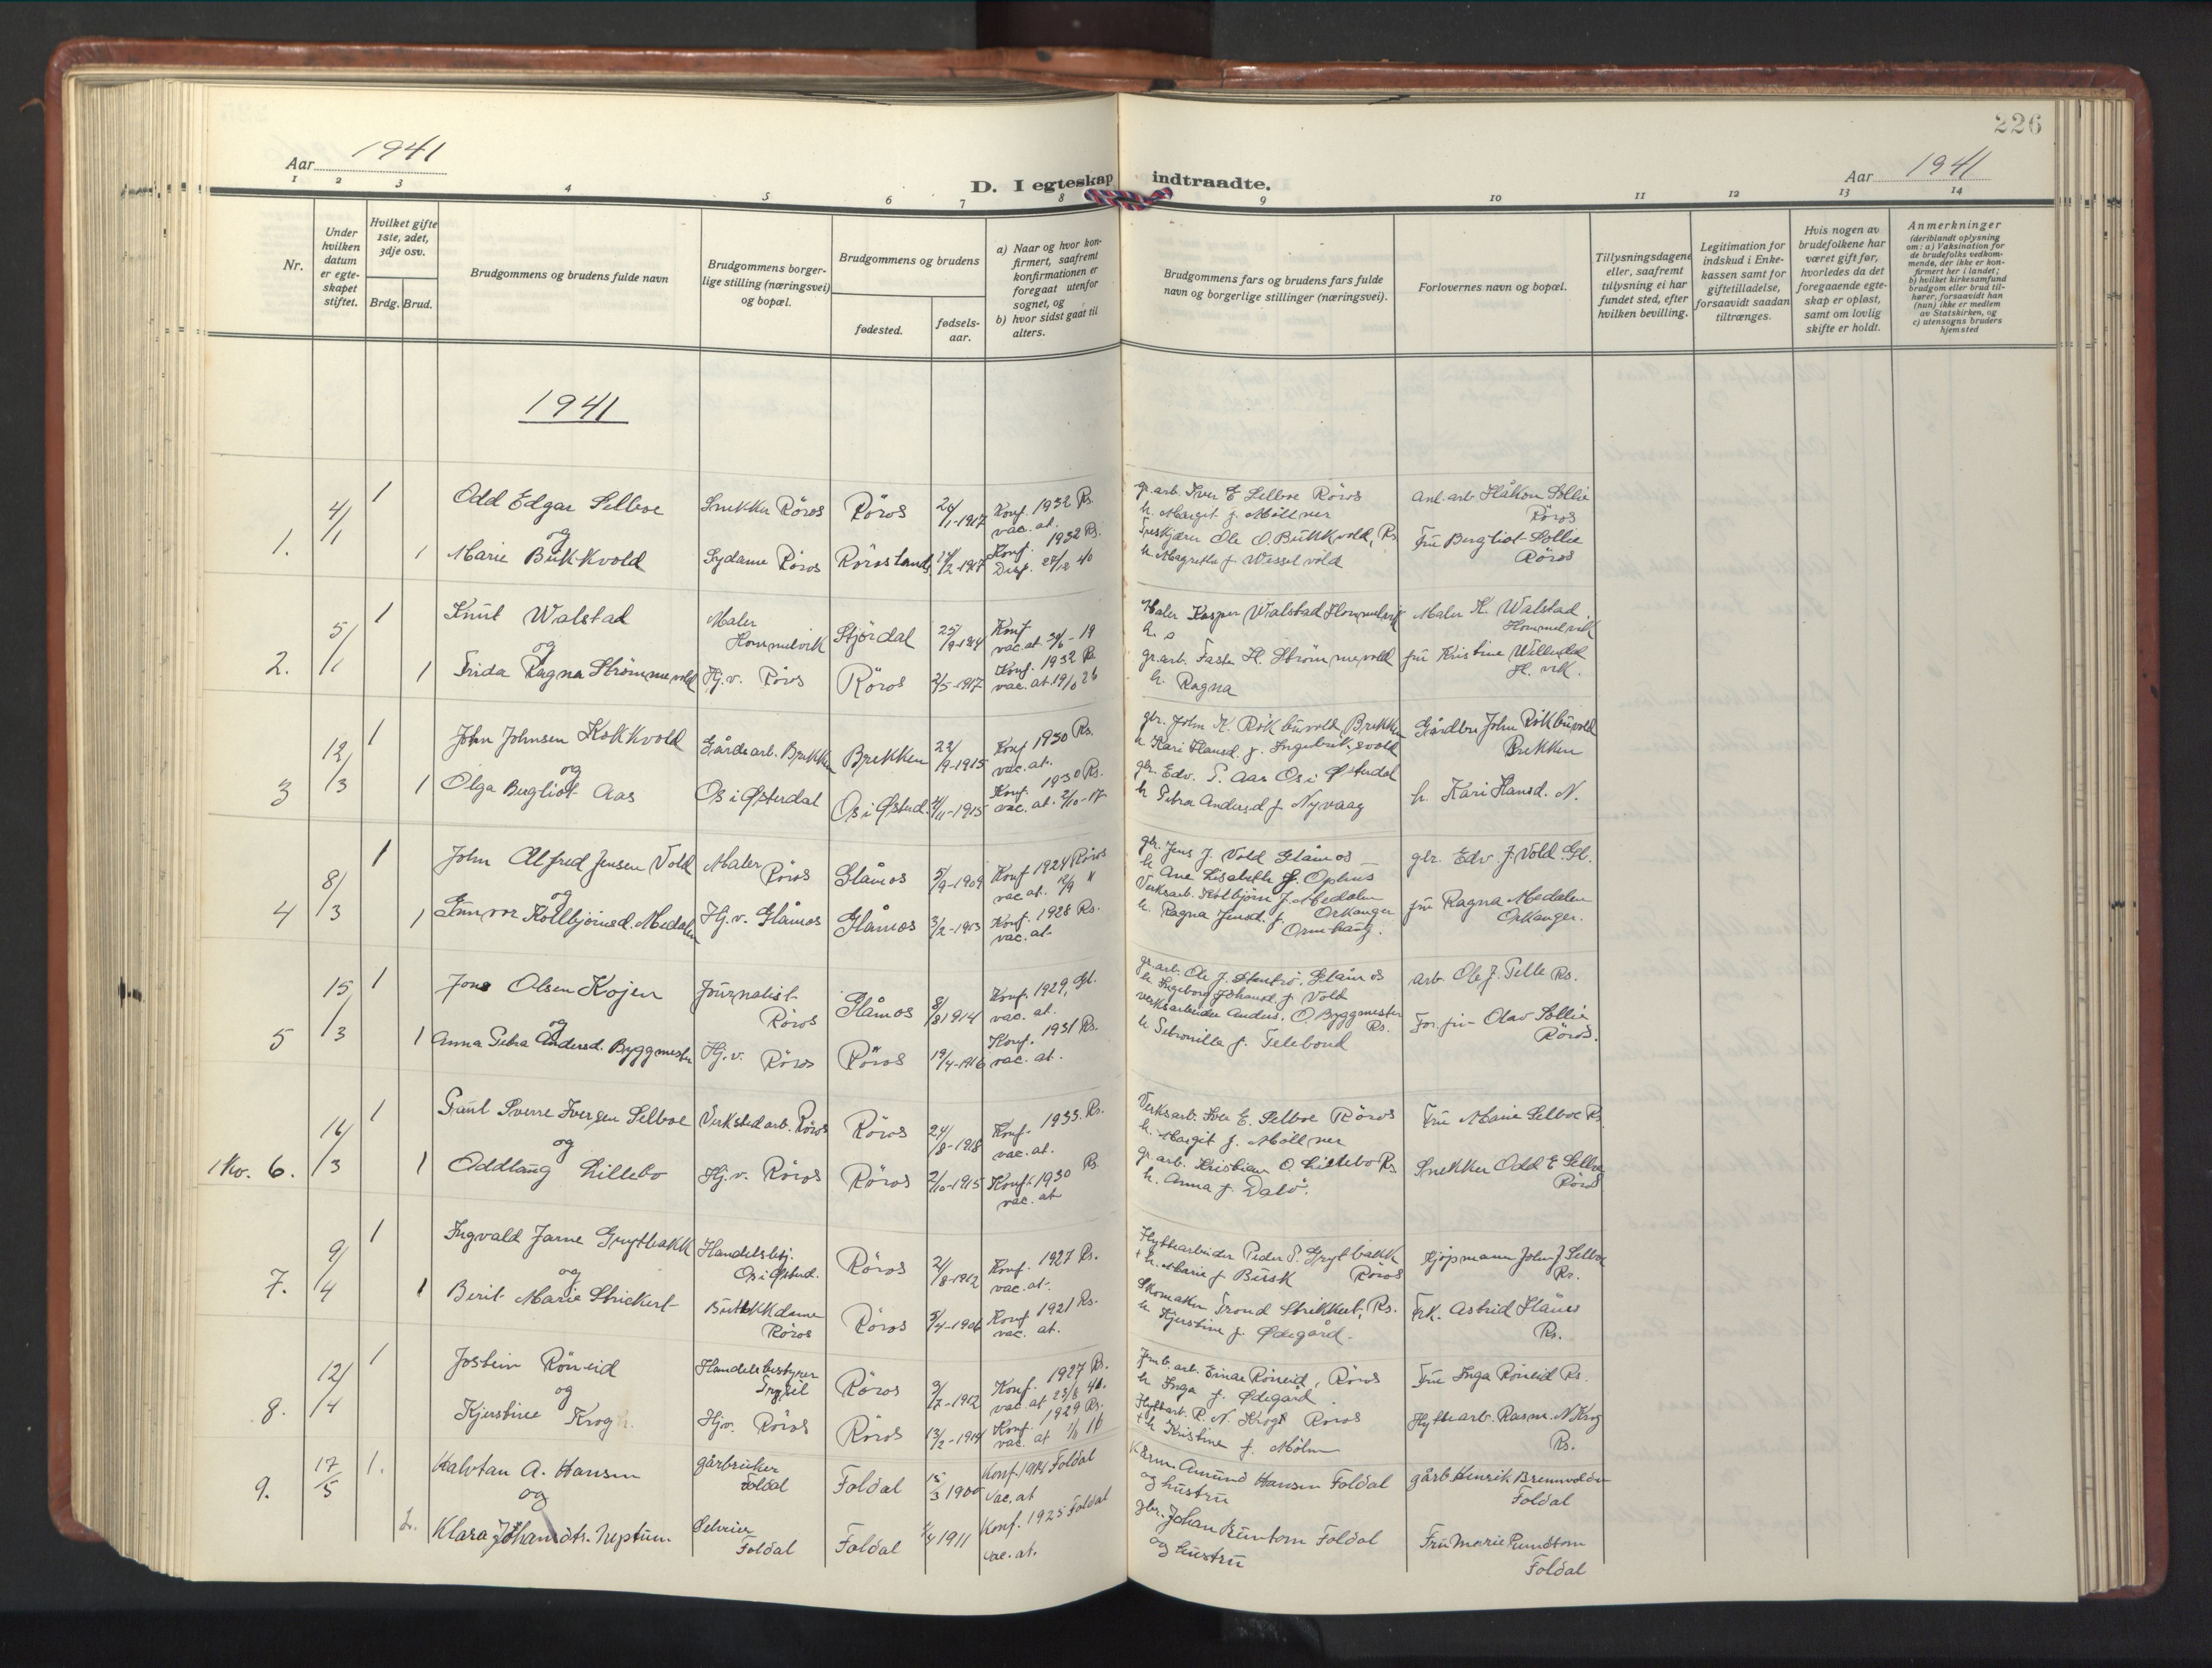 226
Aar 1941
Aar 1941
D. I egteskap indtraadte.
1 2 3 4 5 6 7 8 9 10 11 12 13 14
Nr.
Under hvilken datum er egte-skapet stiftet.
Hvilket gifte 1ste, 2det, 3dje osv.
Brdg. Brud.
Brudgommens og brudens fulde navn
Brudgommens borger-lige stilling (næringsvei) og bopæl.
Brudgommens og brudens
fødested.
fødsels-aar.
a) Naar og hvor kon-firmert, saafremt konfirmationen er foregaat utenfor sognet, og
b) hvor sidst gaat til alters.
Brudgommens fars og brudens fars fulde navn og borgerlige stillinger (næringsvei).
Forlovernes navn og bopæl.
Tillysningsdagene eller, saafremt tillysning ei har fundet sted, efter hvilken bevilling.
Legitimation for indskud i Enke-kassen samt for giftetilladelse, forsaavidt saadan tiltrænges.
Hvis nogen av brudefolkene har været gift før, hvorledes da det foregaaende egte-skap er opløst, samt om lovlig skifte er holdt.
Anmerkninger
(deriblandt oplysning om: a) Vaksination for de brudefolks vedkom-mende, der ikke er kon-firmert her i landet; b) hvilket kirkesamfund brudgom eller brud til-hører, forsaavidt han (hun) ikke er medlem av Statskirken, og c) utensogns bruders hjemsted
1941
1. 4/1 1 Odd Edgar Selboe Snekker Röros Röros 1917 Konf. 1932 Rs. vac. at. gr.arb. Iver E Selboe Röros h. Margit f. Möllner anl. arb. Håkon Sollie Röros
og
1 Marie Bukkvold Sydame Röros Röros Lands. 1917 Konf. 1932 Rs. Disp. Ole O. Bukkvold, Rs. h. Magrethe f. Wesselvold Fru Bergliot Sollie Röros
2. 5/1 1 Knut Walstad Maler Hommelvik Stjördal Konf vac. at. Maler Kasper Walstad Hommelvik Maler K. Walstad Hommelvik
og
1 Frida Ragna Strömmevold Hj.v. Röros Röros 2/5-1917 Konf. 1932 Rs. vac. at. gr.arb. H. Strömmevold h. Ragna fru Kristine H.vik.
3 12/3 1 John Johnsen Kokkvold Gårdsarb. Brekken Brekken 22/9-1915 Konf 1930 Rs. vac. at. gbr. John K. Brekken h. Kari Hansd. f. Gårdbr John Brekken
og
1 Olga Bergliot Aas Os i Østerdal Os i Østerd. 1915 Konf. 1930 Rs. vac. at. gbr. Edv. P. Aas Os i Østerdal h. Petra Andersd f. Nyvaag h. Kari Hansd. N.
4 8/3 1 John Alfred Jensen Vold Maler Röros Glåmos 5/9-1909 Konf 1924 Röros vac. at. gbr. Jens J. Vold Glåmos h. Ane Lisabeth f. Ophus gbr. Edv. J. Vold Gl.
og
1 Gunvor Kolbjörnsd. Medalen Hj.v. Glåmos Glåmos 3/2-1913 Konf. 1928 Rs. vac. at. Verksarb. Kolbjörn J. Medalen Orkanger h. Ragna Jensd. f. Ormhaug. fru Ragna Medalen Orkanger.
5 15/3 1 Jons Olsen Kojen Journalist Röros Glåmos 8/8 1914 Konf. 1929, Gl. vac. at. gr.arb. Ole J. Glåmos h. Ingeborg Johansd. f. Vold arb. Ole J. Rs.
og
1 Anna Petra Andersd. Byggmester Hj.v. Röros Röros 19/4-1916 Konf. 1931 Rs. vac. at. verksarbeider Anders. O. Byggmester Rs. h. Petronille f. Felebond Olav Sollie Röros.
1 Kv. 6. 16/3 1 Paul Sverre Iversen Selboe Verkstedarb. Röros Röros 24/8-1918 Konf. 1933. Rs. vac. at. Verksarb. Iver E. Selboe Röros h. Margit f. Möllner Fru Marie Selboe Rs
og
1 Oddlaug Lillebo Hj.v. Röros Röros 2/10-1915 Konf. 1930 Rs vac. at gr.arb. Kristian O. Lillebo Rs h. Anna f. Dalö. Snekker Odd E Selboe Röros
7. 9/4 1 Ingvald Jarne Grytbakk Handelsbtj. Os i Østerd. Röros 1912 Konf. 1927 Rs. vac. at. Hyttearbeider Peder P. Grytbakk Röros + h. Marie f Busk Kjøpmann John J. Selboe Rs.
og
1 Berit Marie Strickert Butikkdame Röros Röros 1906 Konf 1921 Rs. vac. at. Skomaker Trond Strikkert, Rs. h Kjerstine f. Ødegård. Frk. Astrid Rs.
8. 12/4 1 Jostein Röneid Handelsbestyrer Trysil Röros 3/7-1912 Konf. 1927 Rs. vac. at Jernb. arb. Einar Röneid, Röros h Inga f. Ødegård Fru Inga Röneid Rs.
og
Kjerstine Krog Hjv. Röros Röros 13/2-1914 Konf. 1929 Rs. vac. at Hyttarb. R. N. Krog Röros + h Kristine f. Mølm Hyttearb. Rasm. N Krog Rs.
9. 17/5 1. Kalvtan A. Hansen gårbruker Foldal Foldal 15/3 1900 Konf. 1914 Foldal vac. at Amund Hansen Foldal og hustru gårb Henrik Foldal
og
2. Klara Johansdtr. Neptun Foldal Foldal 1911 Konf. 1925 Foldal vac. at. gbr. Johan Foldal og hustru Fru Marie Foldal